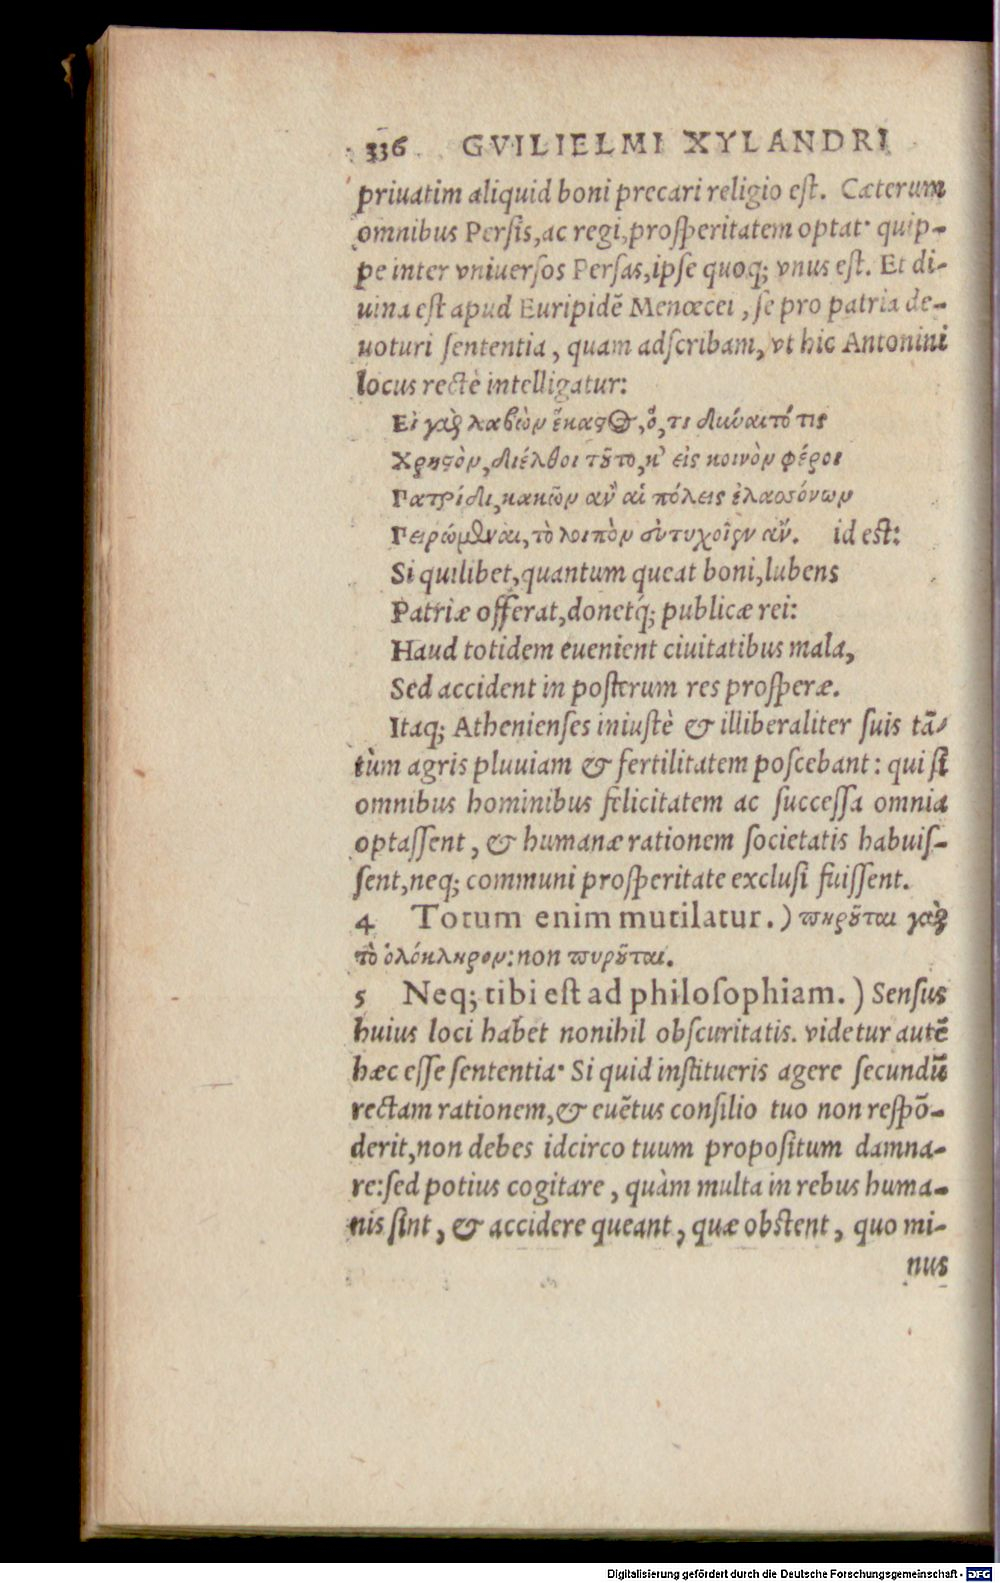 336 GVILIELMI XYLANDRI
priuatim aliquid boni precari religio est. Cæterum
omnibus Persis, ac regi, prosperitatem optat· quip-
pe inter vniuersos Persas, ipse quoq; vnus est. Et di-
uina est apud Euripidē Menœcei, se pro patria de-
uoturi sententia, quam adscribam, vt hic Antonini
locus rectè intelligatur:
Εἰ γὰρ λαβὼν ἕκαστος, ὅ, τι δύναιτό τις
Χρηστὸν, διέλθοι τοῦτο, κ' εἰς κοινὸν φέροι
Πατρίδι, κακῶν ἂν αἱ πόλεις ἐλασσόνων
Πειρώμεναι, τὸ λοιπὸν εὐτυχοῖεν ἄν. id est:
Si quilibet, quantum queat boni, lubens
Patriæ offerat, donetq́; publicæ rei:
Haud totidem euenient ciuitatibus mala,
Sed accident in posterum res prosperæ.
Itaq; Athenienses iniustè & illiberaliter suis tā-
tùm agris pluuiam & fertilitatem poscebant: qui si
omnibus hominibus felicitatem ac successa omnia
optassent, & humanæ rationem societatis habuis-
sent, neq; communi prosperitate exclusi fuissent.
4 Totum enim mutilatur.) πηροῦται γὰρ
τὸ ὁλόκληρον: non πυροῦται.
5 Neq; tibi est ad philosophiam.) Sensus
huius loci habet nonihil obscuritatis. videtur autē
hæc esse sententia· Si quid institueris agere secundū
rectam rationem, & euētus consilio tuo non respō-
derit, non debes idcirco tuum propositum damna-
re: sed potius cogitare, quàm multa in rebus huma-
nis sint, & accidere queant, quæ obstent, quo mi-
nus
Digitalisierung gefördert durch die Deutsche Forschungsgemeinschaft - DFG